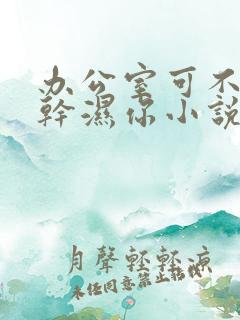 办公室可不
幹濕你小説
月聲輕輕涼
未任同意禁止轉载